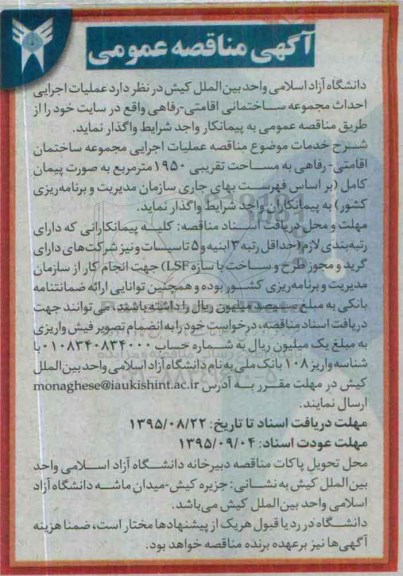 آگهی مناقصه عمومی
دانشگاه آزاد اسلامی واحد بین الملل کیش در نظر دارد عملیات اجرایی
احداث مجموعه ساختمانی اقامتی-رفاهی واقع در سایت خود را از
طریق مناقصه عمومی به پیمانکار واجد شرایط واگذار نماید.
شرح خدمات موضوع مناقصه عملیات اجرایی مجموعه ساختمان
اقامتی- رفاهی به مساحت تقریبی ۱۹۵۰ مترمربع به صورت پیمان
کامل (بر اساس فهرست بهای جاری سازمان مدیریت و برنامه‌ریزی
کشور) به پیمانکاران واجد شرایط واگذار نماید.
مهلت و محل دریافت اسناد مناقصه: کلیه پیمانکارانی که دارای
رتبه‌بندی لازم (حداقل رتبه ۳ ابنیه و ۵ تاسیسات و نیز شرکت‌های دارای
گرید و مجوز طرح و ساخت با سازه LSF) جهت انجام کار از سازمان
مدیریت و برنامه‌ریزی کشور بوده و همچنین توانایی ارائه ضمانتنامه
بانکی به مبلغ سیصد میلیون ریال را داشته باشند، می‌توانند جهت
دریافت اسناد مناقصه، درخواست خود را به انضمام تصویر فیش واریزی
به مبلغ یک میلیون ریال به شماره حساب ۰۱۰۸۳۴۰۸۳۴۰۰۰ با
شناسه واریز ۱۰۸ بانک ملی به نام دانشگاه آزاد اسلامی واحد بین الملل
کیش در مهلت مقرر به آدرس monaghese@iaukishint.ac.ir
ارسال نمایند.
مهلت دریافت اسناد تا تاریخ: ۱۳۹۵/۰۸/۲۲
مهلت عودت اسناد: ۱۳۹۵/۰۹/۰۴
محل تحویل پاکات مناقصه دبیرخانه دانشگاه آزاد اسلامی واحد
بین الملل کیش به نشانی: جزیره کیش-میدان ماشه دانشگاه آزاد
اسلامی واحد بین الملل کیش می‌باشد.
دانشگاه در رد یا قبول هریک از پیشنهادها مختار است، ضمنا هزینه
آگهی‌ها نیز بر عهده برنده مناقصه خواهد بود.